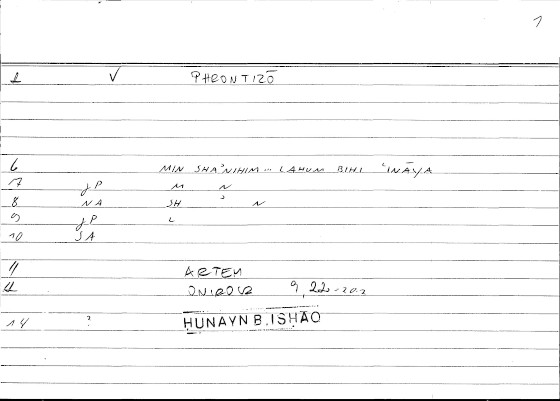 1
1 V PHRONTIZŌ
6 MIN SHA'NIHIM... LAHUM BIHI 'INĀYA
7 JP M N
8 NA SH ' N
9 JP L
10 SA
11 ARTEM
12 ONIROCR 9, 22-202
14 ? HUNAYN B. ISHĀQ